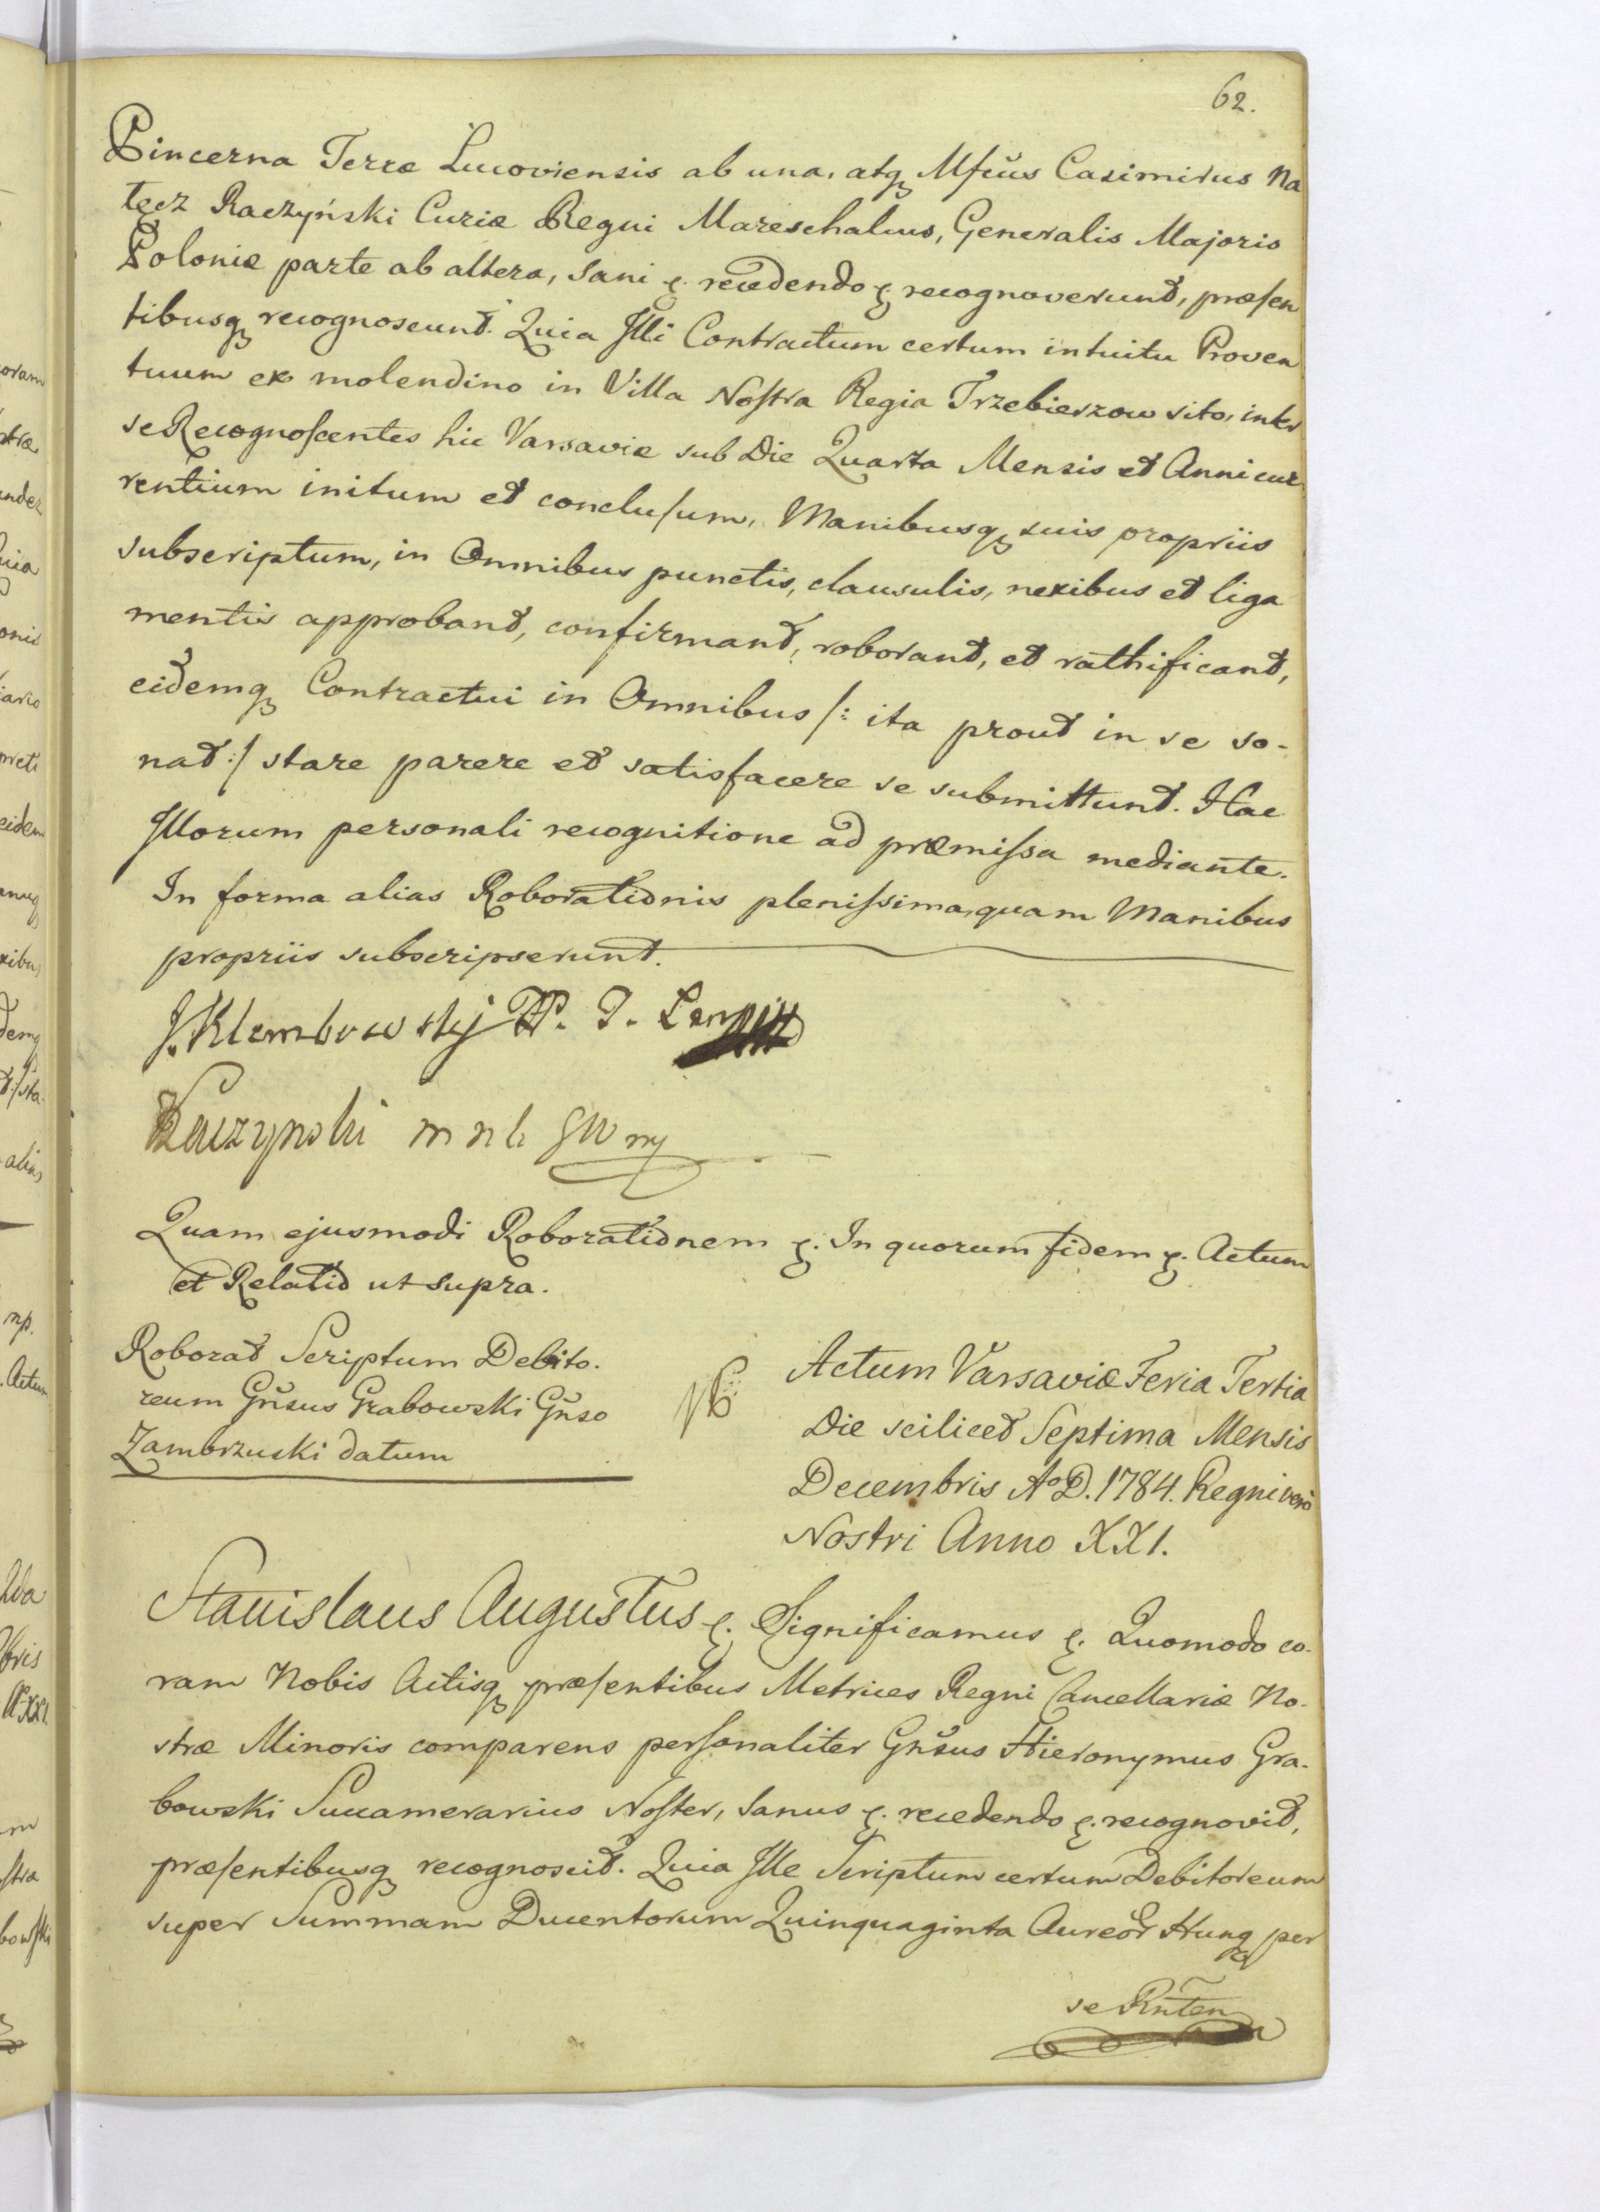 62.
Pincerna Terræ Lucoviensis ab una, atq Mfcus Casimirus Na
tęcz Raczyński Curiæ Regni Mareschalcus, Generalis Majoris
Poloniæ parte ab altera, Sani &. recedendo &. recognoverunt, præsen
tibusq recognoscunt. Quia Illi Contractum certum intuitu Proven
tuum ex molendino in Villa Nostra Regia Trzebierzow sito, inter
se Recognoscentes hic Varsaviæ sub Die Quarta Mensis et Anni cur
rentium initum et conclusum, Manibusq suis propriis
subscriptum, in Omnibus punctis, clausulis, nexibus et liga
mentis approbant, confirmant, roborant, et rathificant,
eidemq Contractui in Omnibus /: ita prout in se so-
nat :/ stare parere et satisfacere se submittunt. Hac
Illorum personali recognitione ad præmissa mediante.
In forma alias Roborationis plenissima, quam Manibus
propriis subscripserunt.
J. Klembowskij P. T.
Raczynski
Quam ejusmodi Roborationem &. In quorum fidem &. Actum
et Relatio ut supra.
Roborat Scriptum Debito-
reum Gnsus Grabowski Gnso
Zambrzuski datum
Actum Varsaviæ Feria Tertia
Die scilicet Septima Mensis
Decembris A° D. 1784. Regni vero
Nostri Anno XXI.
Stanislaus Augustus &. Significamus &. Quomodo co-
ram Nobis Actisq præsentibus Metrices Regni Cancellariæ No-
stræ Minoris comparens personaliter Gnsus Hieronymus Gra-
bowski Succamerarius Noster, Sanus &. recedendo &. recognovit,
præsentibusq recognoscit. Quia Ille Scriptum certum Debitoreum
super Summam Ducentorum Quinquaginta Aureor Hung per
se Rnten